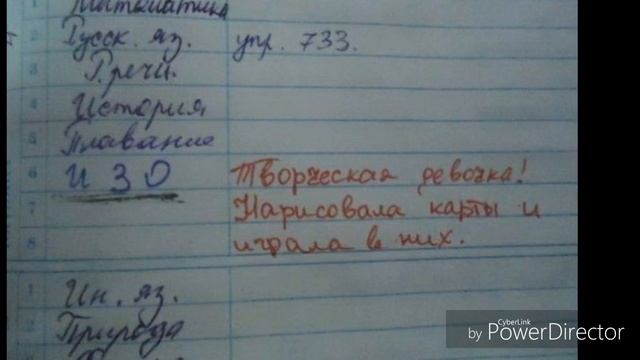 1 Математика
2 Русск. яз. упр. 733.
3 Р.речи.
4 История
5 Плавание
6 ИЗО Творческая девочка!
7 Нарисовала карты и
8 играла в них.
1 Ин. яз.
2 Природа
CyberLink
by PowerDirector